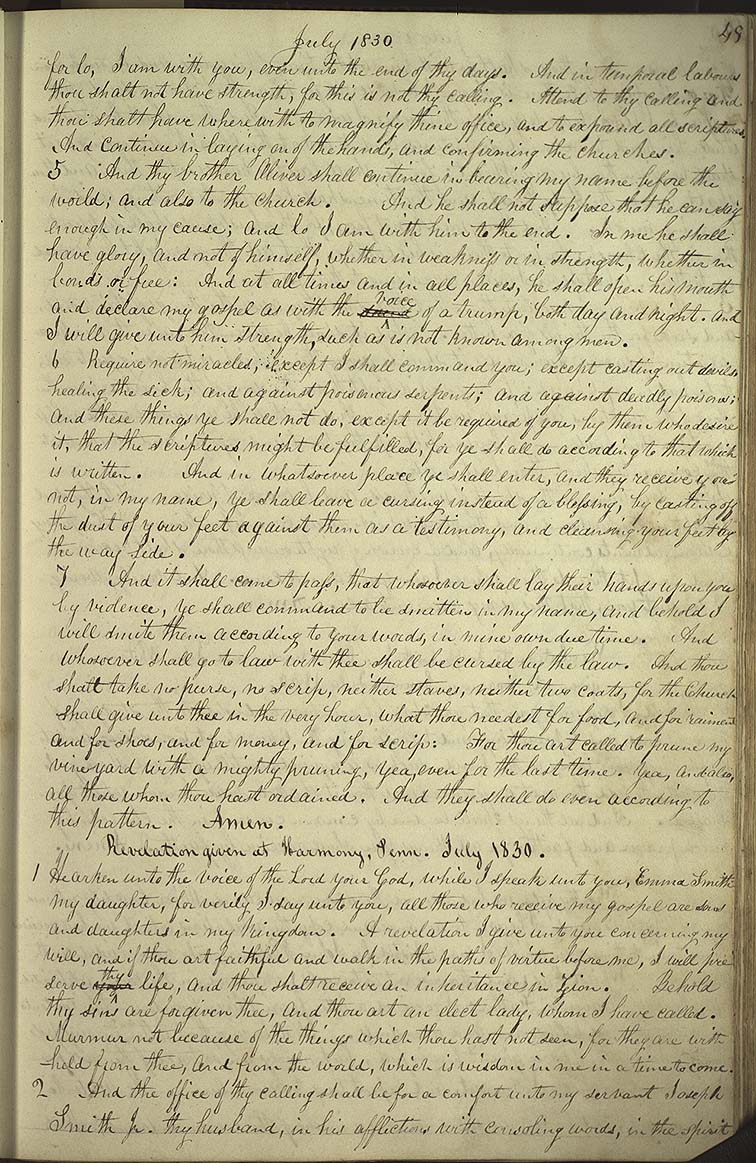 July 1830
48
for lo, I am with you, even unto the end of thy days. And in temporal labours
thou shalt not have strength, for this is not thy calling. Attend to thy calling and
thou shalt have wherewith to magnify thine office, and to expound all scriptures.
And continue in laying on of the hands, and confirming the churches.
5 And thy brother Oliver shall continue in bearing my name before the
world; and also to the church. And he shall not suppose that he can say
enough in my cause; and lo I am with him to the end. In me he shall
have glory, and not of himself, whether in weakness or in strength, whether in
bonds or free: And at all times and in all places, he shall open his mouth
and declare my gospel as with the voice of a trump, both day and night. And
I will give unto him strength, such as is not known among men.
6 Require not miracles, except I shall command you; except casting out devils;
healing the sick; and against poisonous serpents; and against deadly poisons;
and these things ye shall not do, except it be required of you, by them who desire
it, that the scriptures might be fulfilled, for ye shall do according to that which
is written. And in whatsoever place ye shall enter, and they receive you
not, in my name, ye shall leave a cursing instead of a blessing, by casting off
the dust of your feet against them as a testimony, and cleansing your feet by
the way side.
7 And it shall come to pass, that whosoever shall lay their hands upon you
by violence, ye shall command to be smitten in my name, and behold I
will smite them according to your words, in mine own due time. And
whosoever shall go to law with thee shall be cursed by the law. And thou
shalt take no purse, no scrip, neither staves, neither two coats, for the Church
shall give unto thee in the very hour, what thou needest for food, and for raiment
and for shoes, and for money, and for scrip: For thou art called to prune my
vineyard with a mighty pruning, yea, even for the last time. Yea, and also,
all those whom thou hast ordained. And they shall do even according to
this pattern. Amen.
Revelation given at Harmony, Penn. July 1830.
1 Hearken unto the voice of the Lord your God, while I speak unto you, Emma Smith
my daughter, for verily I say unto you, all those who receive my gospel are sons
and daughters in my kingdom. A revelation I give unto you concerning my
will, and if thou art faithful and walk in the paths of virtue before me, I will pre
serve thy life, and thou shalt receive an inheritance in Zion. Behold
thy sins are forgiven thee, and thou art an elect lady, whom I have called.
Murmur not because of the things which thou hast not seen, for they are with
held from thee, and from the world, which is wisdom in me in a time to come.
2 And the office of thy calling shall be for a comfort unto my servant Joseph
Smith Jr. thy husband, in his afflictions with consoling words, in the spirit